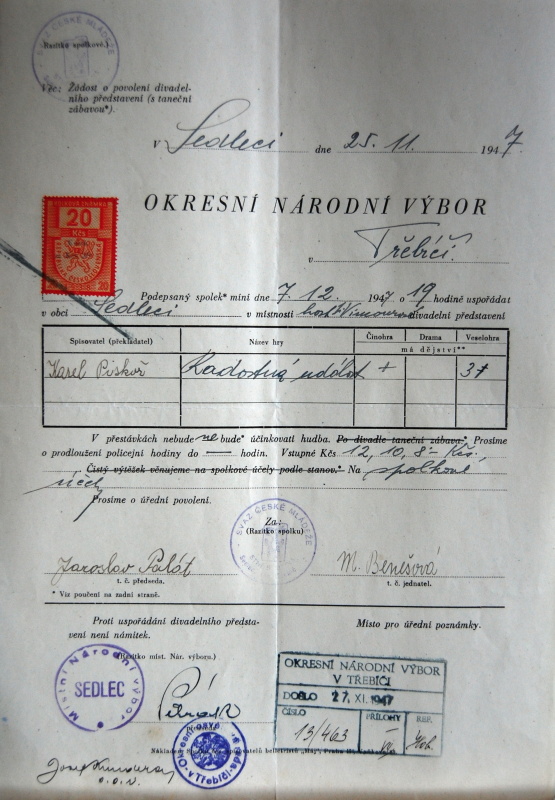 SVAZ ČESKÉ MLÁDEŽE
(Razítko spolkové.)
Věc: Žádost o povolení divadel-
ního představení (s taneční
zábavou*).
V Sedleci dne 25. 11. 1947.
OKRESNÍ NÁRODNÍ VÝBOR
v Třebíči.
KOLKOVÁ ZNÁMKA
20
Kčs
20 20
Podepsaný spolek* míní dne 7. 12. 1947 o 19 hodině uspořádat
v obci Sedleci v místnosti divadelní představení
Spisovatel (překladatel) Název hry Činohra Drama Veselohra
má dějství**
Karel Piskoř Radostná událost + 3+
V přestávkách nebude ne bude* účinkovati hudba. Po divadle taneční zábava.* Prosíme
o prodloužení policejní hodiny do — hodin. Vstupné Kčs 12, 10, 8 Kčs.,
Čistý výtěžek věnujeme na spolkové účely podle stanov.* Na spolkové
účely
Prosíme o úřední povolení.
SVAZ ČESKÉ MLÁDEŽE
Za:
(Razítko spolku)
Jaroslav Palát M. Benešová
t. č. předseda. t. č. jednatel.
* Viz poučení na zadní straně.
Proti uspořádání divadelního předsta-
vení není námitek.
Místo pro úřední poznámky.
(Razítko míst. Nár. výboru.)
Místní Národní výbor
SEDLEC
OKRESNÍ NÁRODNÍ VÝBOR
V TŘEBÍČI
DOŠLO 27. XI. 1947
ČÍSLO PŘÍLOHY REF.
13/463